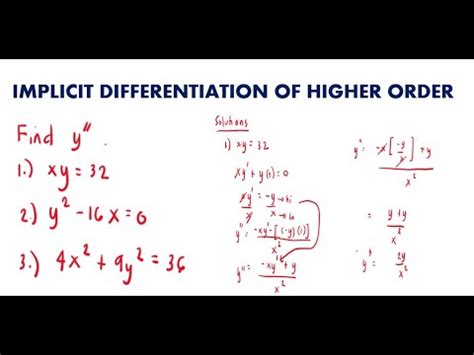 IMPLICIT DIFFERENTIATION OF HIGHER ORDER
Find y".
1.) xy = 32
2.) y² - 16x = 0
3.) 4x² + 9y² = 36
Solutions
1) xy = 32
xy' + y(1) = 0
xy'/x = -y/x → hi → lo
y" = -xy' - [(-y)(1)] / x²
y" = -xy' + y / x²
y" = -x[-y/x] + y / x²
= y + y / x²
y" = 2y / x²